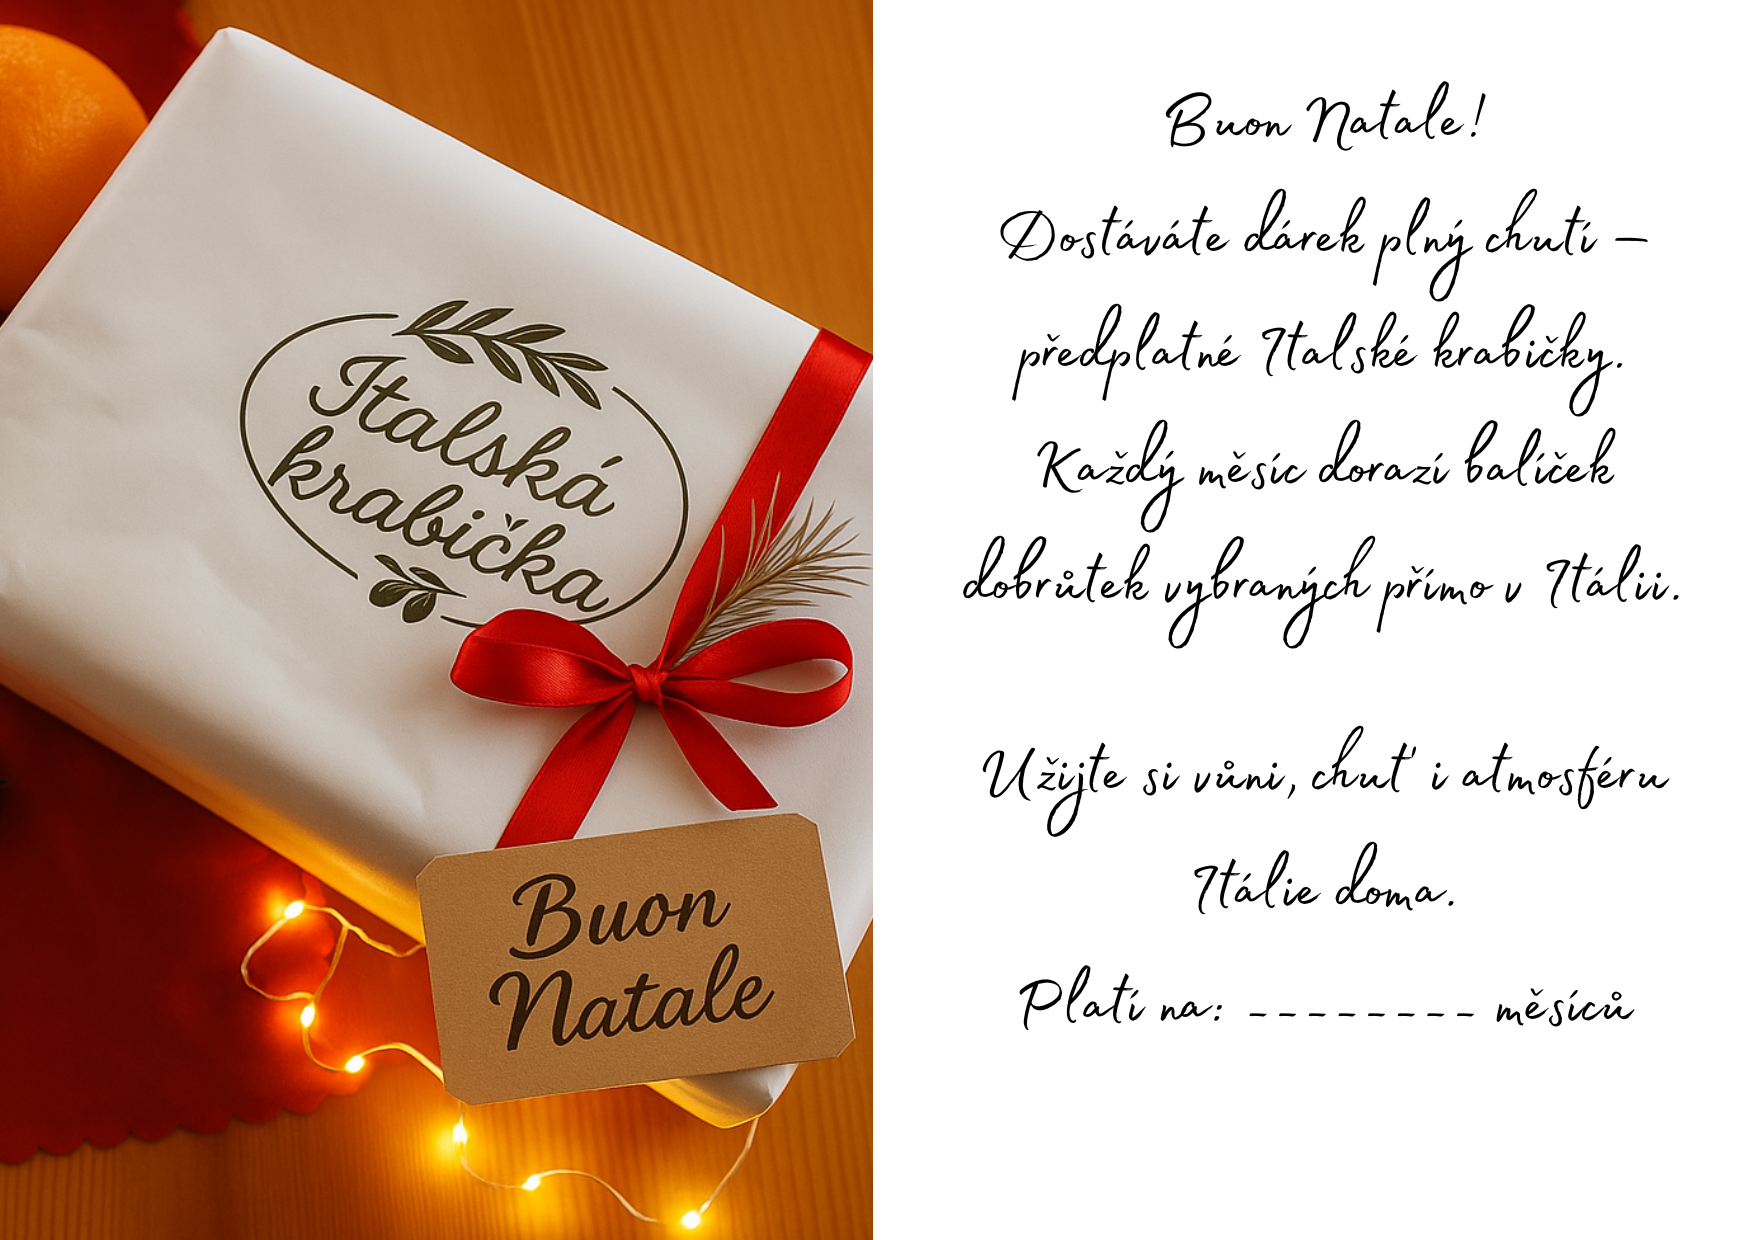 Italská
krabička
Buon
Natale
Buon Natale!
Dostáváte dárek plný chutí –
předplatné Italské krabičky.
Každý měsíc dorazí balíček
dobrůtek vybraných přímo v Itálii.
Užijte si vůni, chuť i atmosféru
Itálie doma.
Platí na: -------- měsíců